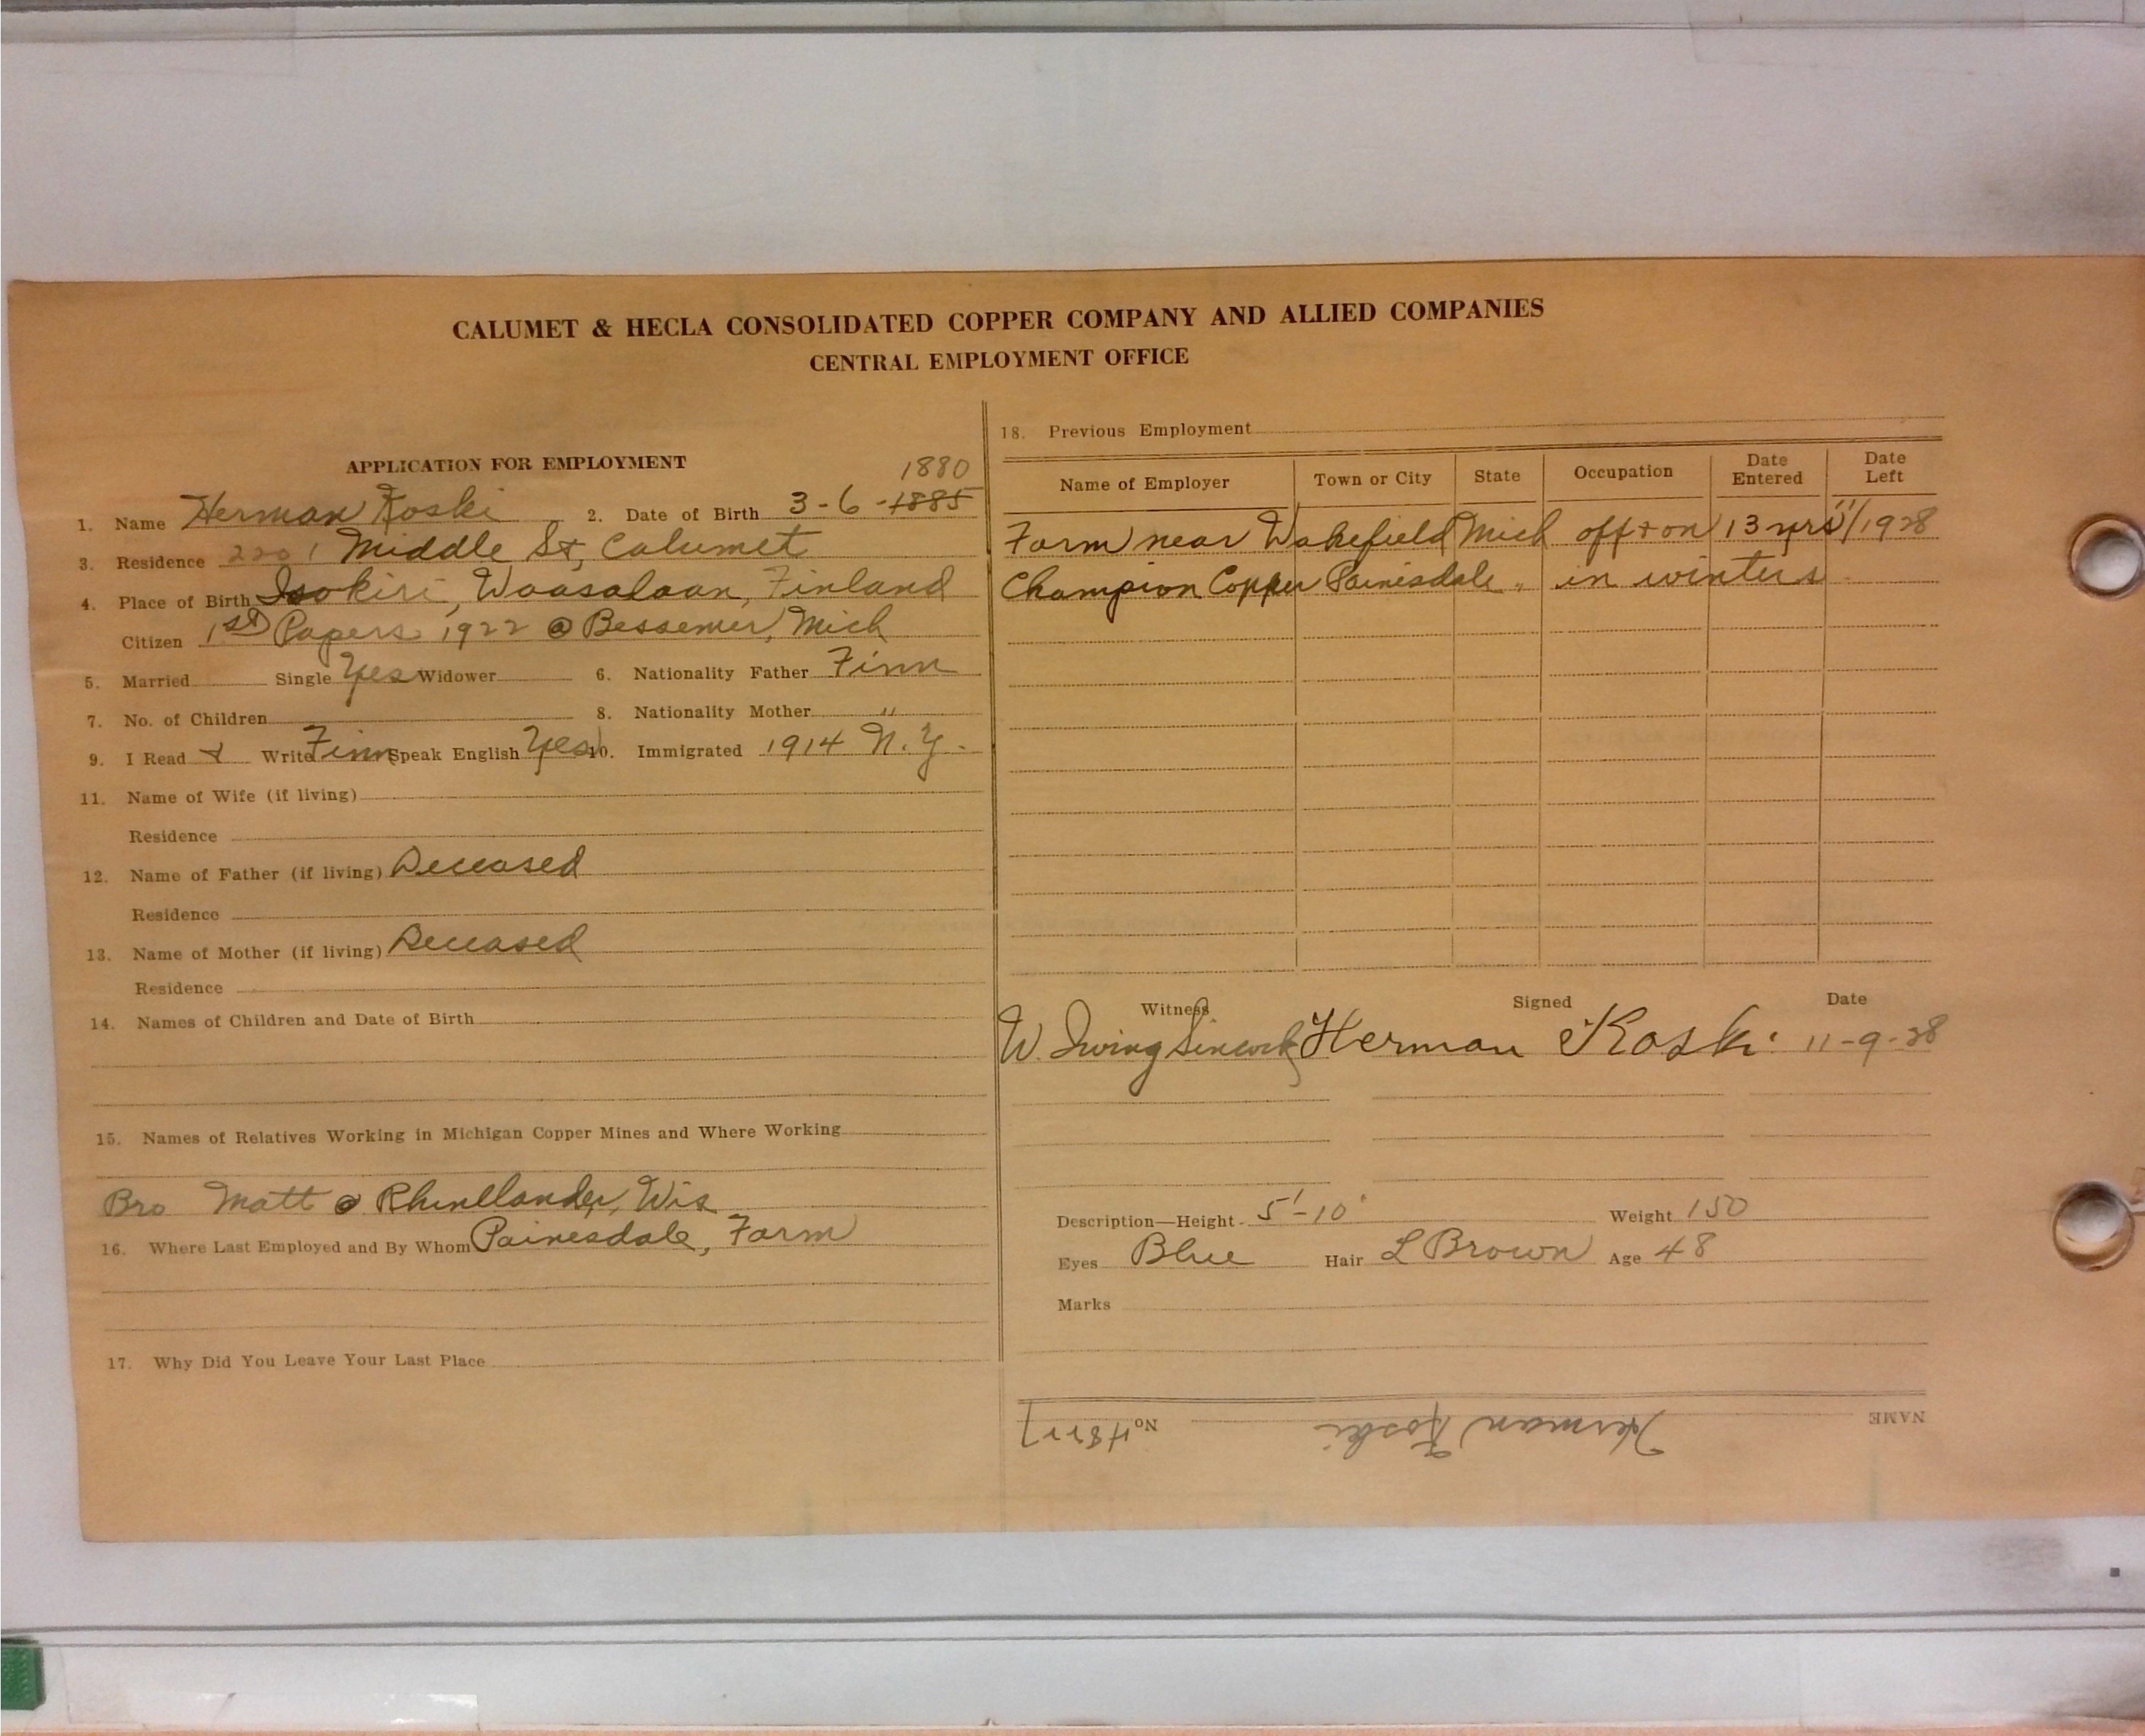 CALUMET & HECLA CONSOLIDATED COPPER COMPANY AND ALLIED COMPANIES
CENTRAL EMPLOYMENT OFFICE
APPLICATION FOR EMPLOYMENT
1880
1. Name Herman Koski 2. Date of Birth 3-6-1885
3. Residence 2201 Middle St, Calumet
4. Place of Birth Isokiri, Waasalaan, Finland
Citizen 1st Papers 1922 @ Bessemer, Mich
5. Married Single Yes Widower 6. Nationality Father Finn
7. No. of Children 8. Nationality Mother "
9. I Read & Write Finn Speak English Yes 10. Immigrated 1914 N.Y.
11. Name of Wife (if living)
Residence
12. Name of Father (if living) Deceased
Residence
13. Name of Mother (if living) Deceased
Residence
14. Names of Children and Date of Birth
15. Names of Relatives Working in Michigan Copper Mines and Where Working
Bro Matt @ Rhinellander, Wis
16. Where Last Employed and By Whom Painesdale, Farm
17. Why Did You Leave Your Last Place
18. Previous Employment
Name of Employer Town or City State Occupation Date Entered Date Left
Farm near Wakefield Mich off + on 13 yrs 11/1928
Champion Copper Painesdale " in winters
Witness Signed Date
W. Irving Sincock Herman Koski 11-9-28
Description—Height 5'-10" Weight 150
Eyes Blue Hair L Brown Age 48
Marks
NAME Herman Koski No. 48227